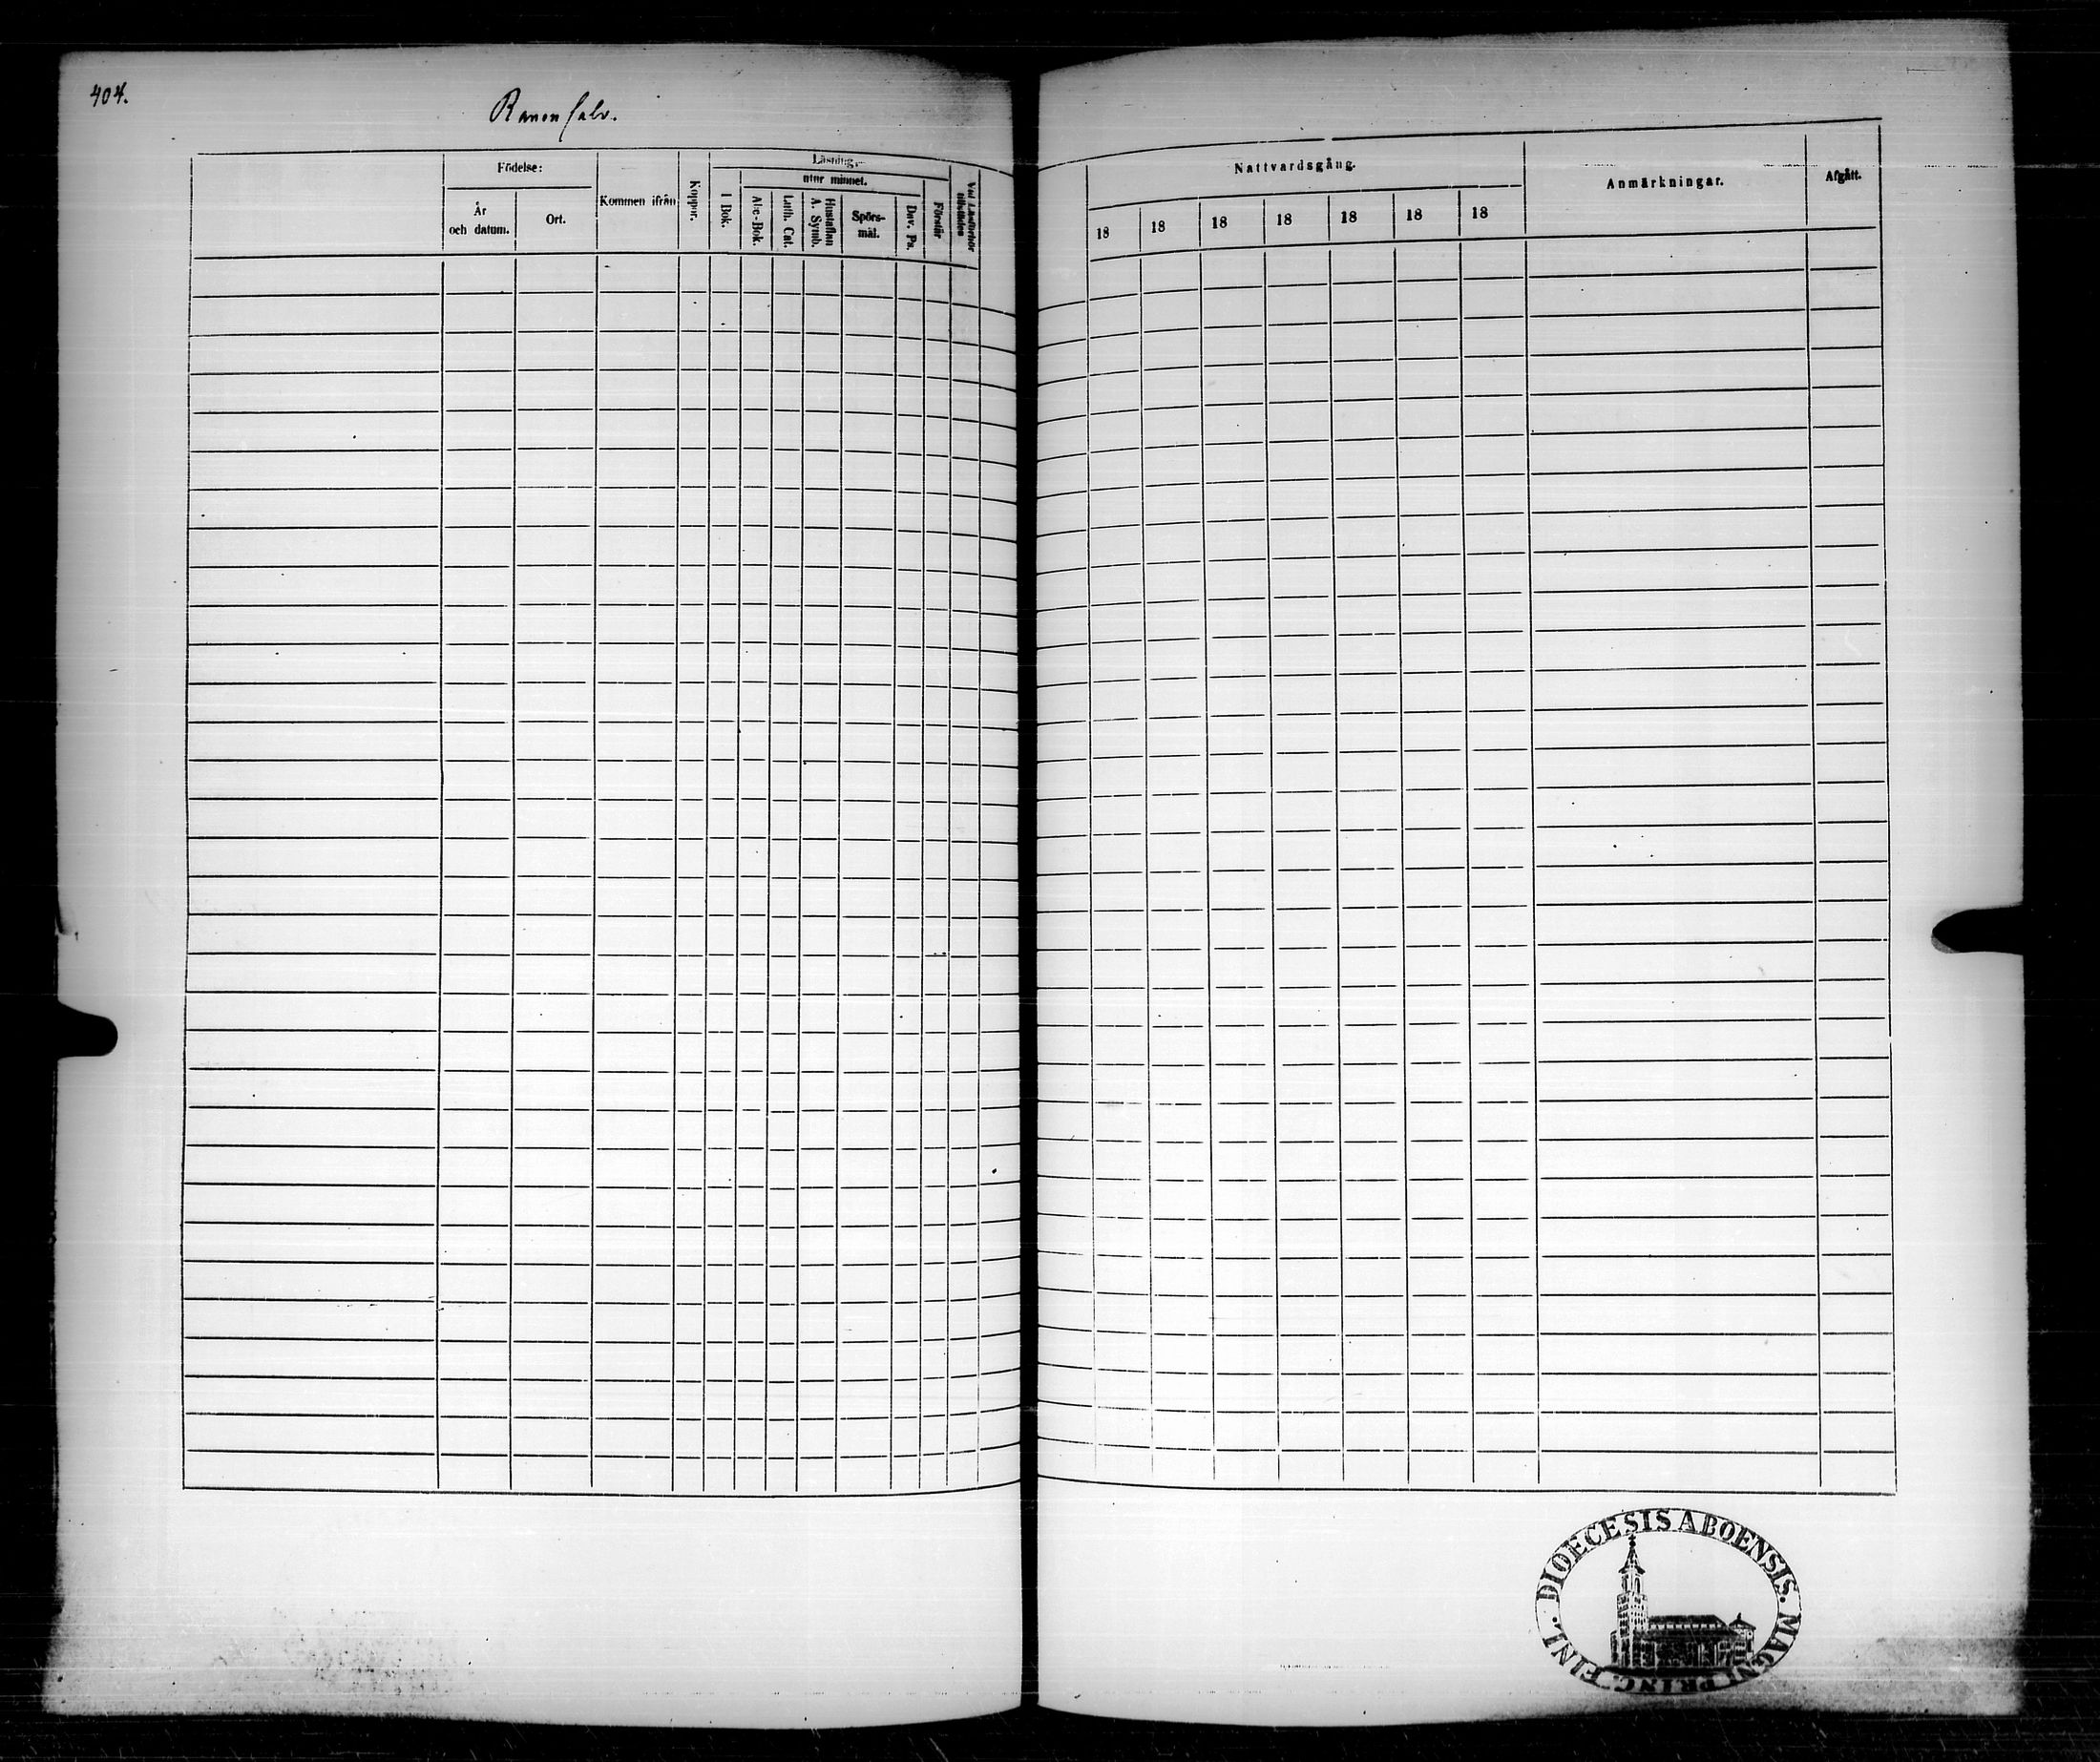 404.
Födelse:
År
och datum.
Ort.
Kommen ifrån
Koppor.
Läsning,
utur minnet.
I Bok.
Abc-Bok.
Luth. Cat.
Hustaflan
A. Symb.
Spörs-
mål.
Dav. Ps.
Förstår
Vid Läsförhör
tillstädes
Nattvardsgång.
18 18 18 18 18 18 18
Anmärkningar.
Afgått.
DIOECESIS ABOENSIS. MAGNI PRINC. FINL.